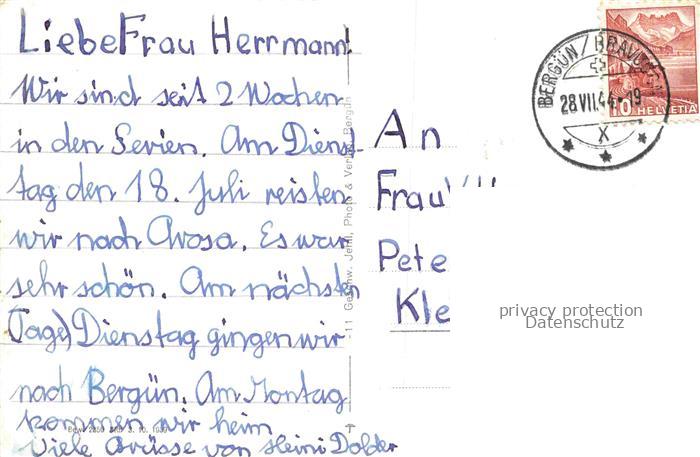 Liebe Frau Herrmann!
Wir sind seit 2 Wochen
in den Ferien. Am Dienst-
tag den 18. Juli reisten
wir nach Arosa. Es war
sehr schön. Am nächsten
(Tage) Dienstag gingen wir
nach Bergün. Am Montag
kommen wir heim
Viele Grüsse von Heini Dolder
An
Frau
Pete
Kle
BERGÜN/BRAVUOGN
28.VII.44.-19
X
10 HELVETIA
privacy protection
Datenschutz
Jenni, Photo & Verlag, Bergün